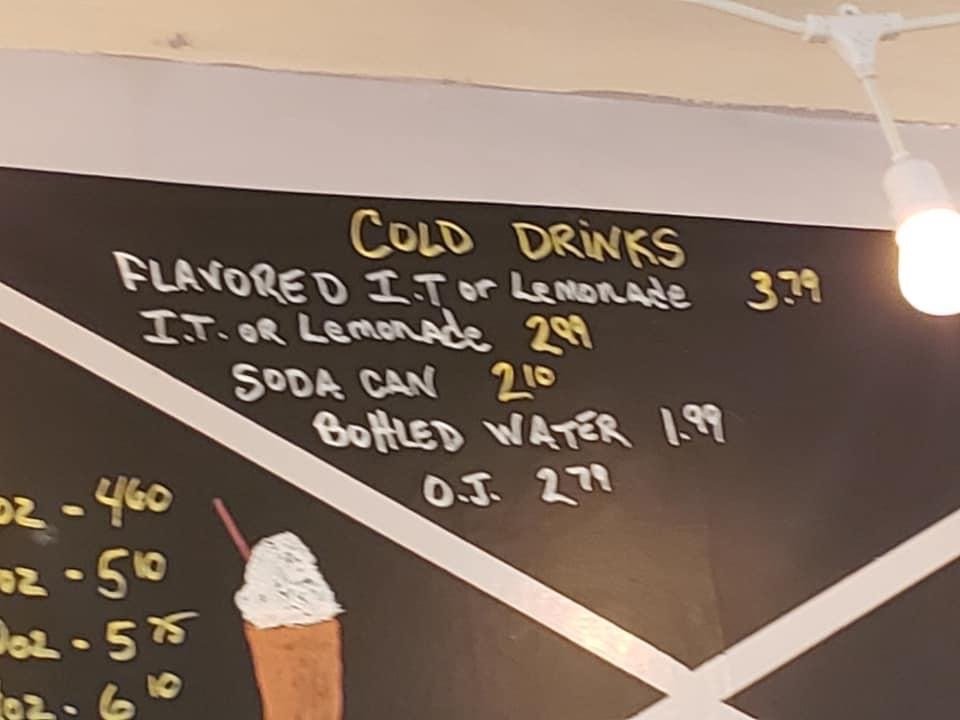 COLD DRINKS
FLAVORED I.T or Lemonade 3.79
I.T. OR Lemonade 299
SODA CAN 210
BOttLED WATER 1.99
O.J. 279
oz - 460
oz - 510
oz - 575
oz - 610